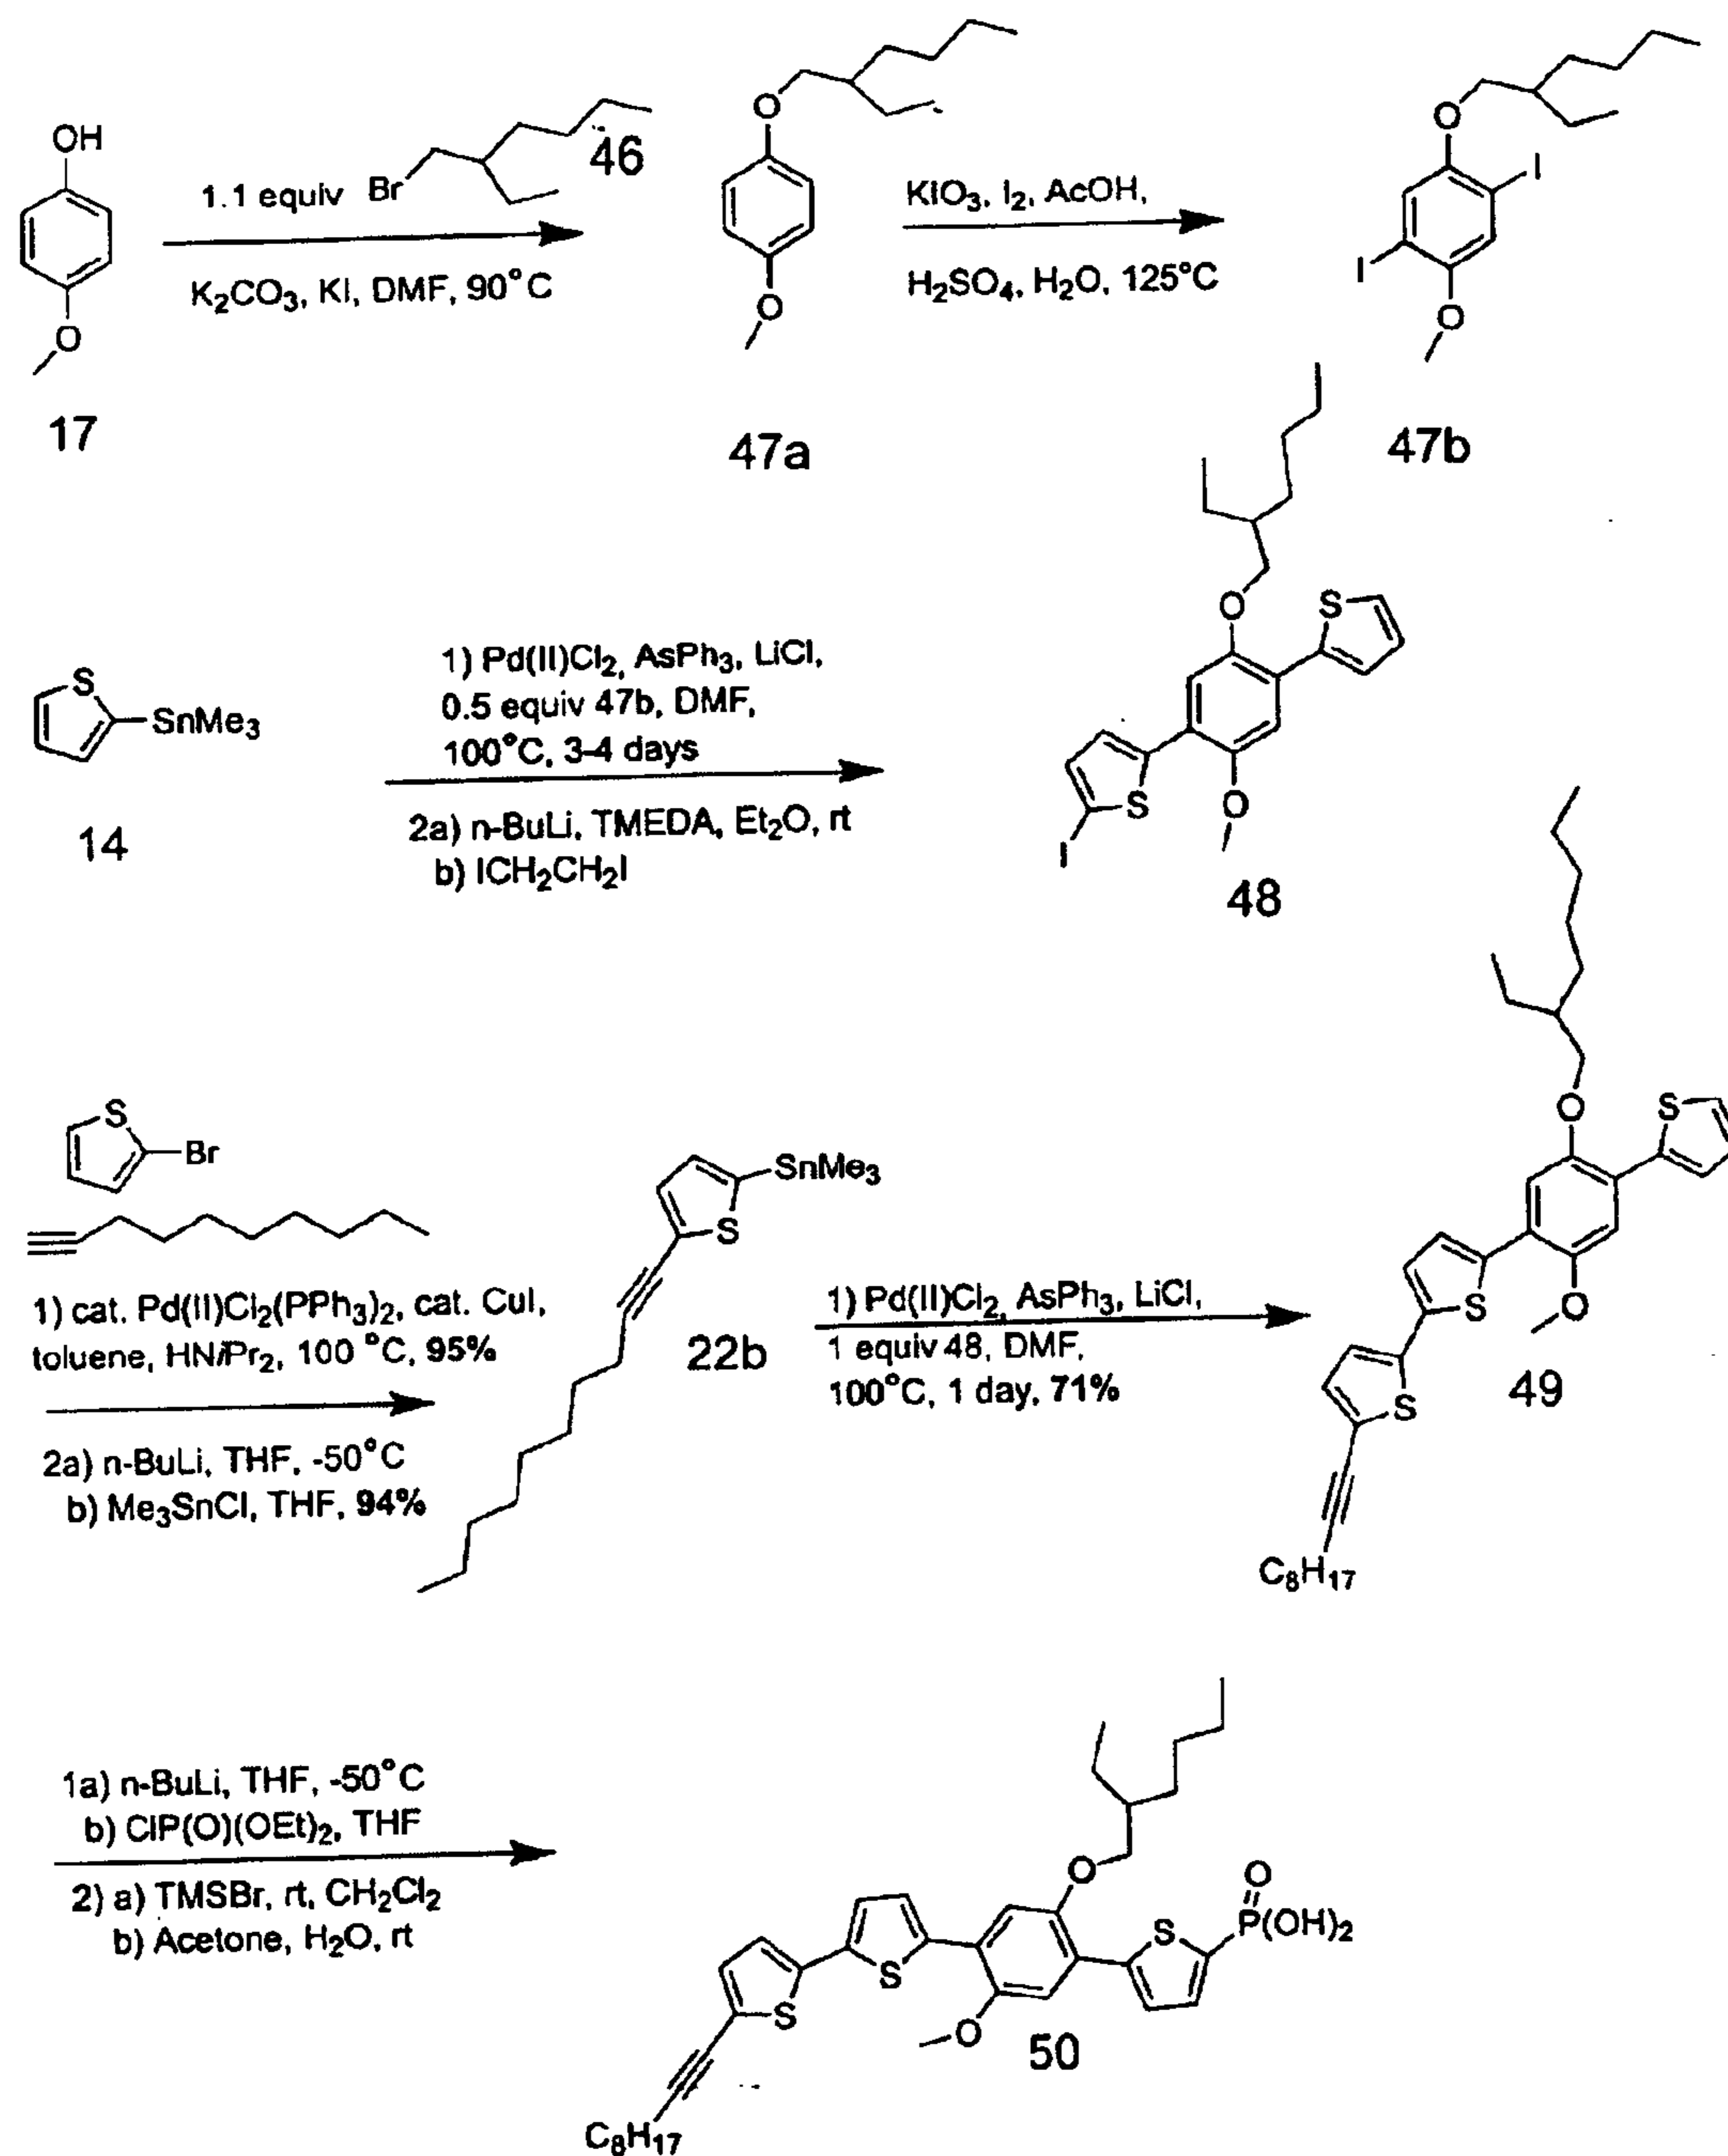 OH
O
17
1.1 equiv Br
46
K2CO3, KI, DMF, 90°C
O
O
47a
KIO3, I2, AcOH,
H2SO4, H2O, 125°C
O
I
I
O
47b
S
SnMe3
14
1) Pd(II)Cl2, AsPh3, LiCl,
0.5 equiv 47b, DMF,
100°C, 3-4 days
2a) n-BuLi, TMEDA, Et2O, rt
b) ICH2CH2I
O
S
S
O
I
48
S
Br
1) cat. Pd(II)Cl2(PPh3)2, cat. CuI,
toluene, HNiPr2, 100 °C, 95%
2a) n-BuLi, THF, -50°C
b) Me3SnCl, THF, 94%
SnMe3
S
22b
1) Pd(II)Cl2, AsPh3, LiCl,
1 equiv 48, DMF,
100°C, 1 day, 71%
O
S
S
O
S
C8H17
49
1a) n-BuLi, THF, -50°C
b) ClP(O)(OEt)2, THF
2) a) TMSBr, rt, CH2Cl2
b) Acetone, H2O, rt
O
O
S
P(OH)2
S
S
O
C8H17
50